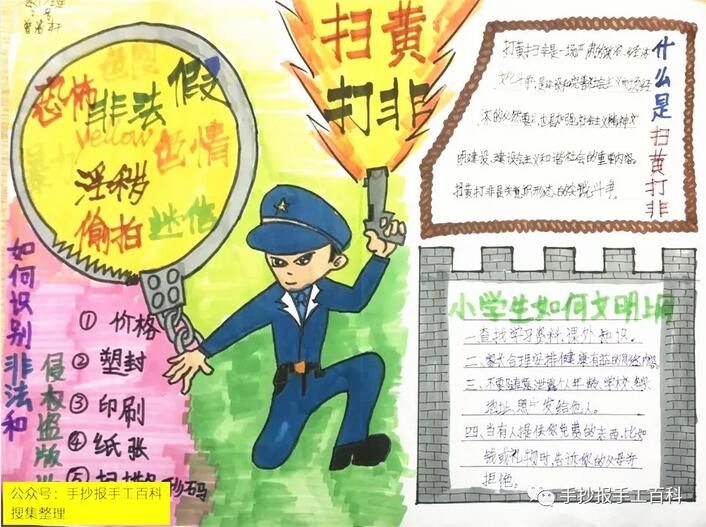 2号
恐怖
非法
假
色情
yellow
暴力
淫秽
偷拍
迷信
扫黄
打非
什么是扫黄打非
打黄扫非是一场严肃的政治、经济
文化斗争,是建设和完善社会主义市场经
济的必然要求,也是加强社会主义精神文
明建设、建设社会主义和谐社会的重要内容。
扫黄打非是意识形态的尖锐斗争。
如何识别非法和
侵权盗版
① 价格
② 塑封
③ 印刷
④ 纸张
⑤ 扫描
小学生如何文明上网
一、查找学习资料,课外知识。
二、家长合理安排健康有益的网络内容。
三、不要随意泄露个人年龄、学校
地址、照片发给他人。
四、当有人提供你免费的东西,比如
钱或礼物时,告诉你的父母并
拒绝。
公众号:手抄报手工百科
搜集整理
手抄报手工百科